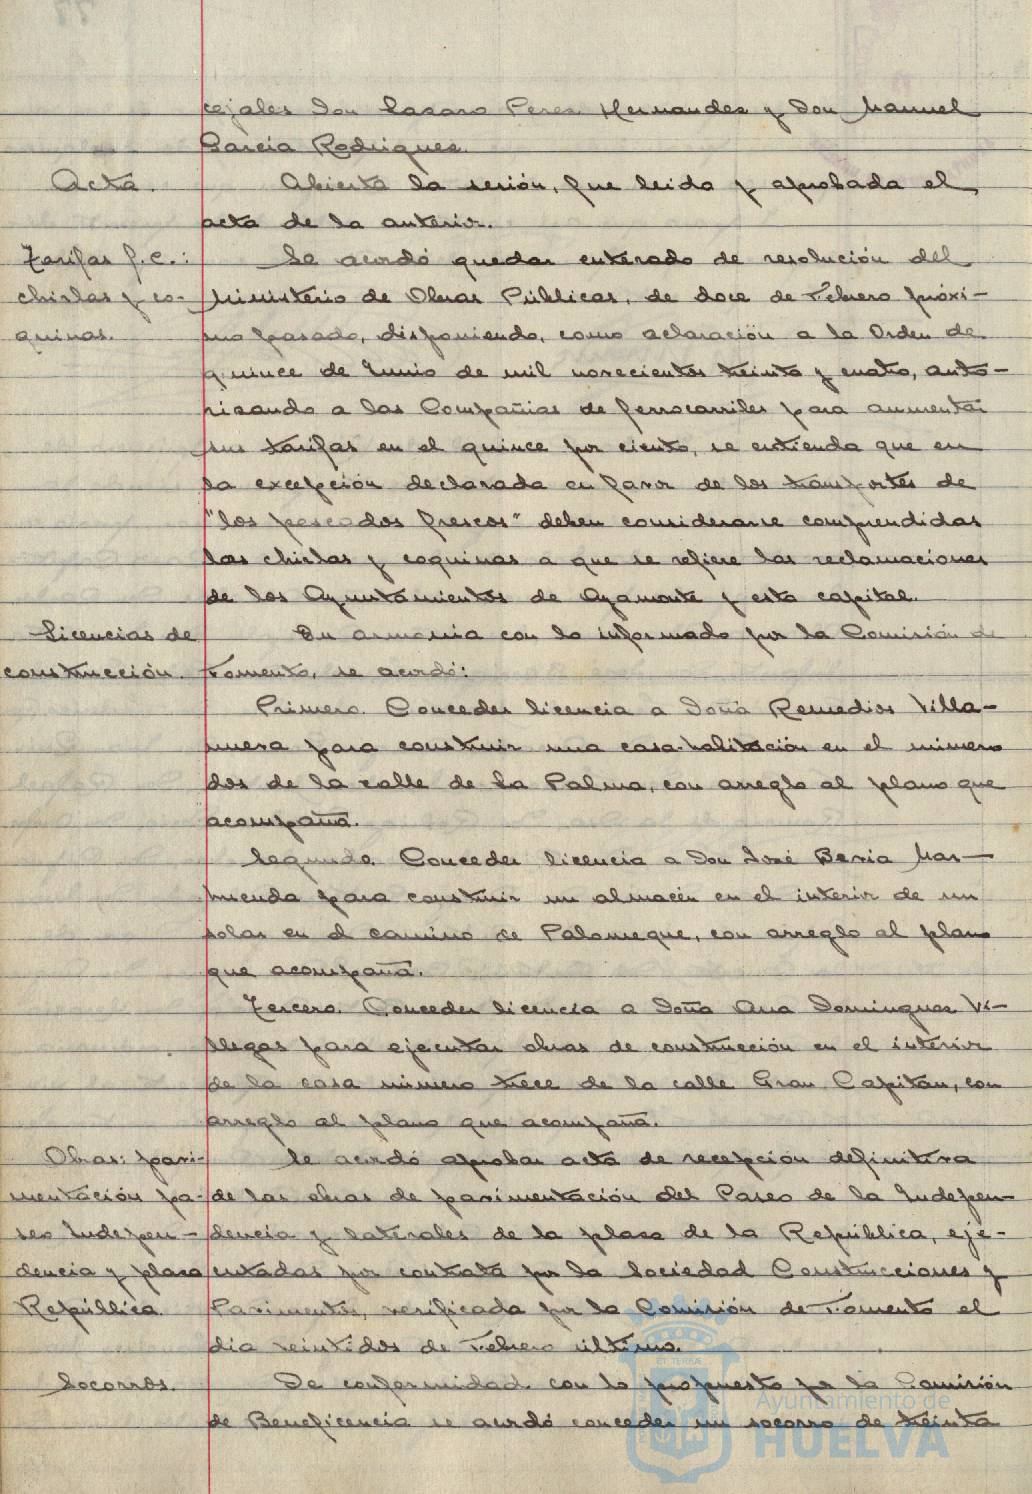 cejales Don Lazaro Perez Hernandez y Don Manuel
Garcia Rodriguez.
Acta.
Abierta la sesión, fue leida y aprobada el
acta de la anterior.
Tarifas f.c.:
chirlas y co-
quinas.
Se acordó quedar enterado de resolución del
Ministerio de Obras Públicas, de doce de Febrero próxi-
mo pasado, disponiendo, como aclaración a la Orden de
quince de Junio de mil novecientos treinta y cuatro, auto-
rizando a las Compañias de ferrocarriles para aumentar
sus tarifas en el quince por ciento, se entienda que en
la excepción declarada en favor de los transportes de
"los pescados frescos" deben considerarse comprendidas
las chirlas y coquinas a que se refiere las reclamaciones
de los Ayuntamientos de Ayamonte y esta capital.
Licencias de
construcción.
En armonia con lo informado por la Comisión de
Fomento, se acordó:
Primero. Conceder licencia a Doña Remedios Villa-
nueva para construir una casa-habitación en el número
dos de la calle de La Palma, con arreglo al plano que
acompaña.
Segundo. Conceder licencia a Don José Beria Mar-
muenda para construir un almacén en el interior de un
solar en el camino de Palomeque, con arreglo al plano
que acompaña.
Tercero. Conceder licencia a Doña Ana Dominguez Vi-
llegas para ejecutar obras de construcción en el interior
de la casa número trece de la calle Gran Capitán, con
arreglo al plano que acompaña.
Obras: pavi-
mentación pa-
seo Indepen-
dencia y plaza
República.
Se acordó aprobar acta de recepción definitiva
de las obras de pavimentación del Paseo de la Indepen-
dencia y laterales de la plaza de la República, eje-
cutadas por contrata por la Sociedad Construcciones y
Pavimentos, verificada por la Comisión de Fomento el
dia veintidos de Febrero último.
Socorros.
De conformidad con lo propuesto por la Comisión
de Beneficencia se acordó conceder un socorro de treinta
ET TERRÆ
Ayuntamiento de
HUELVA